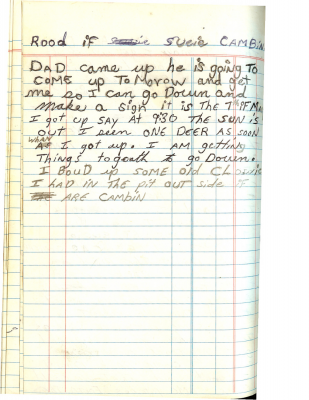 Rood if Sucie CAMBin
DAD came up he is going To
come up To Morow and get
me so I can go Down and
make a sign it is THE T
I got up SAY AT 930 THE SUN is
out I seen ONE DEER AS soon
WHAN I got up. I AM getting
Things to geath to go Down.
I BouD up SOME old CL
I HAD IN THE pit out side
ARE CAMBiN